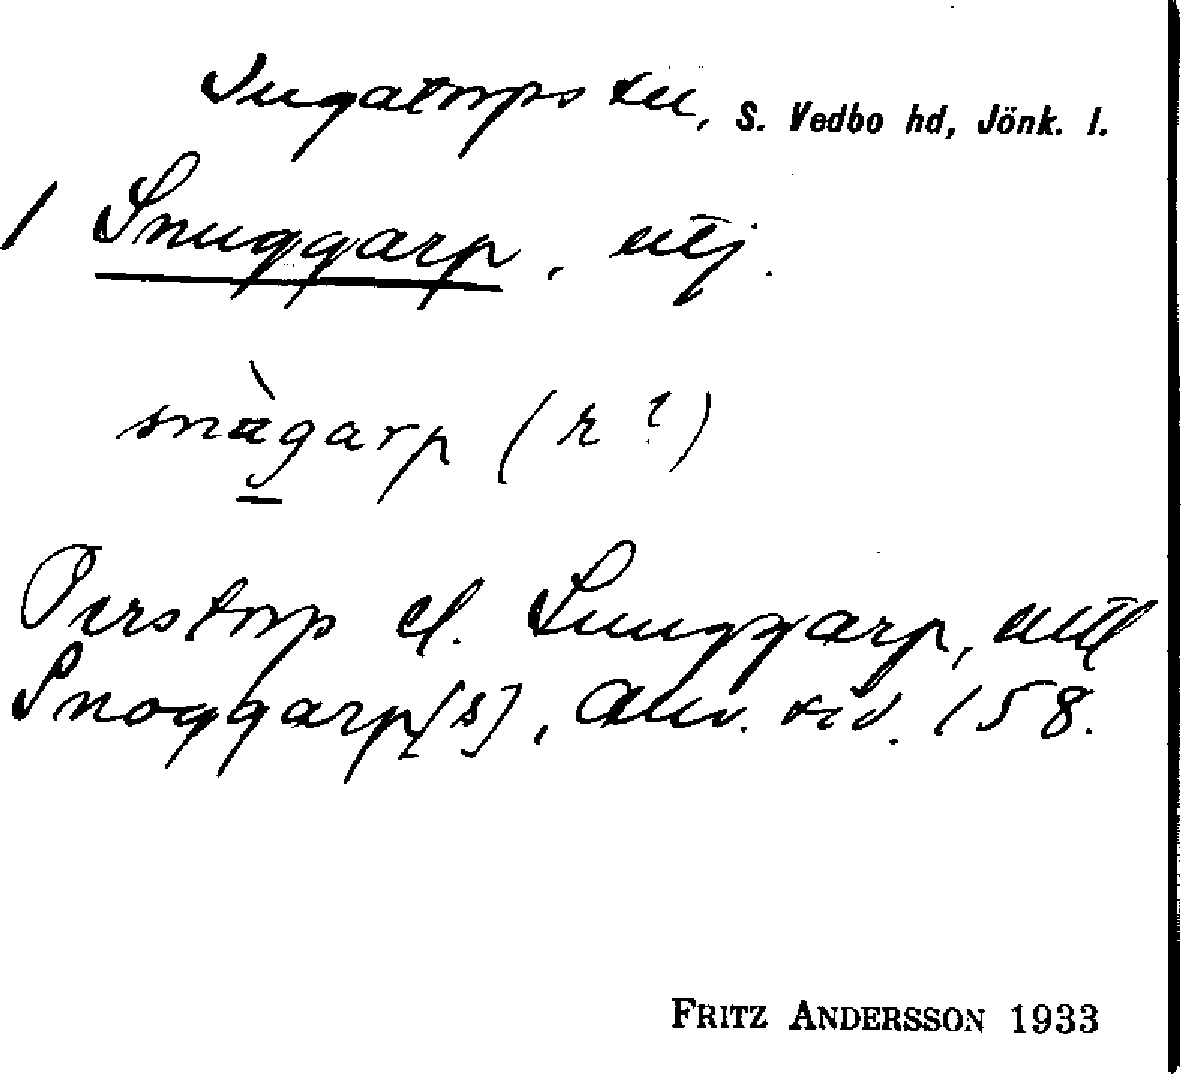 Ingatorps sn, S. Vedbo hd, Jönk. l.
/ Snuggarp, utj.
snùgarp (r?)
Perstorp el. Snuggarp, uttl
Snoggarp[s], Anv. sid. 158.
FRITZ ANDERSSON 1933